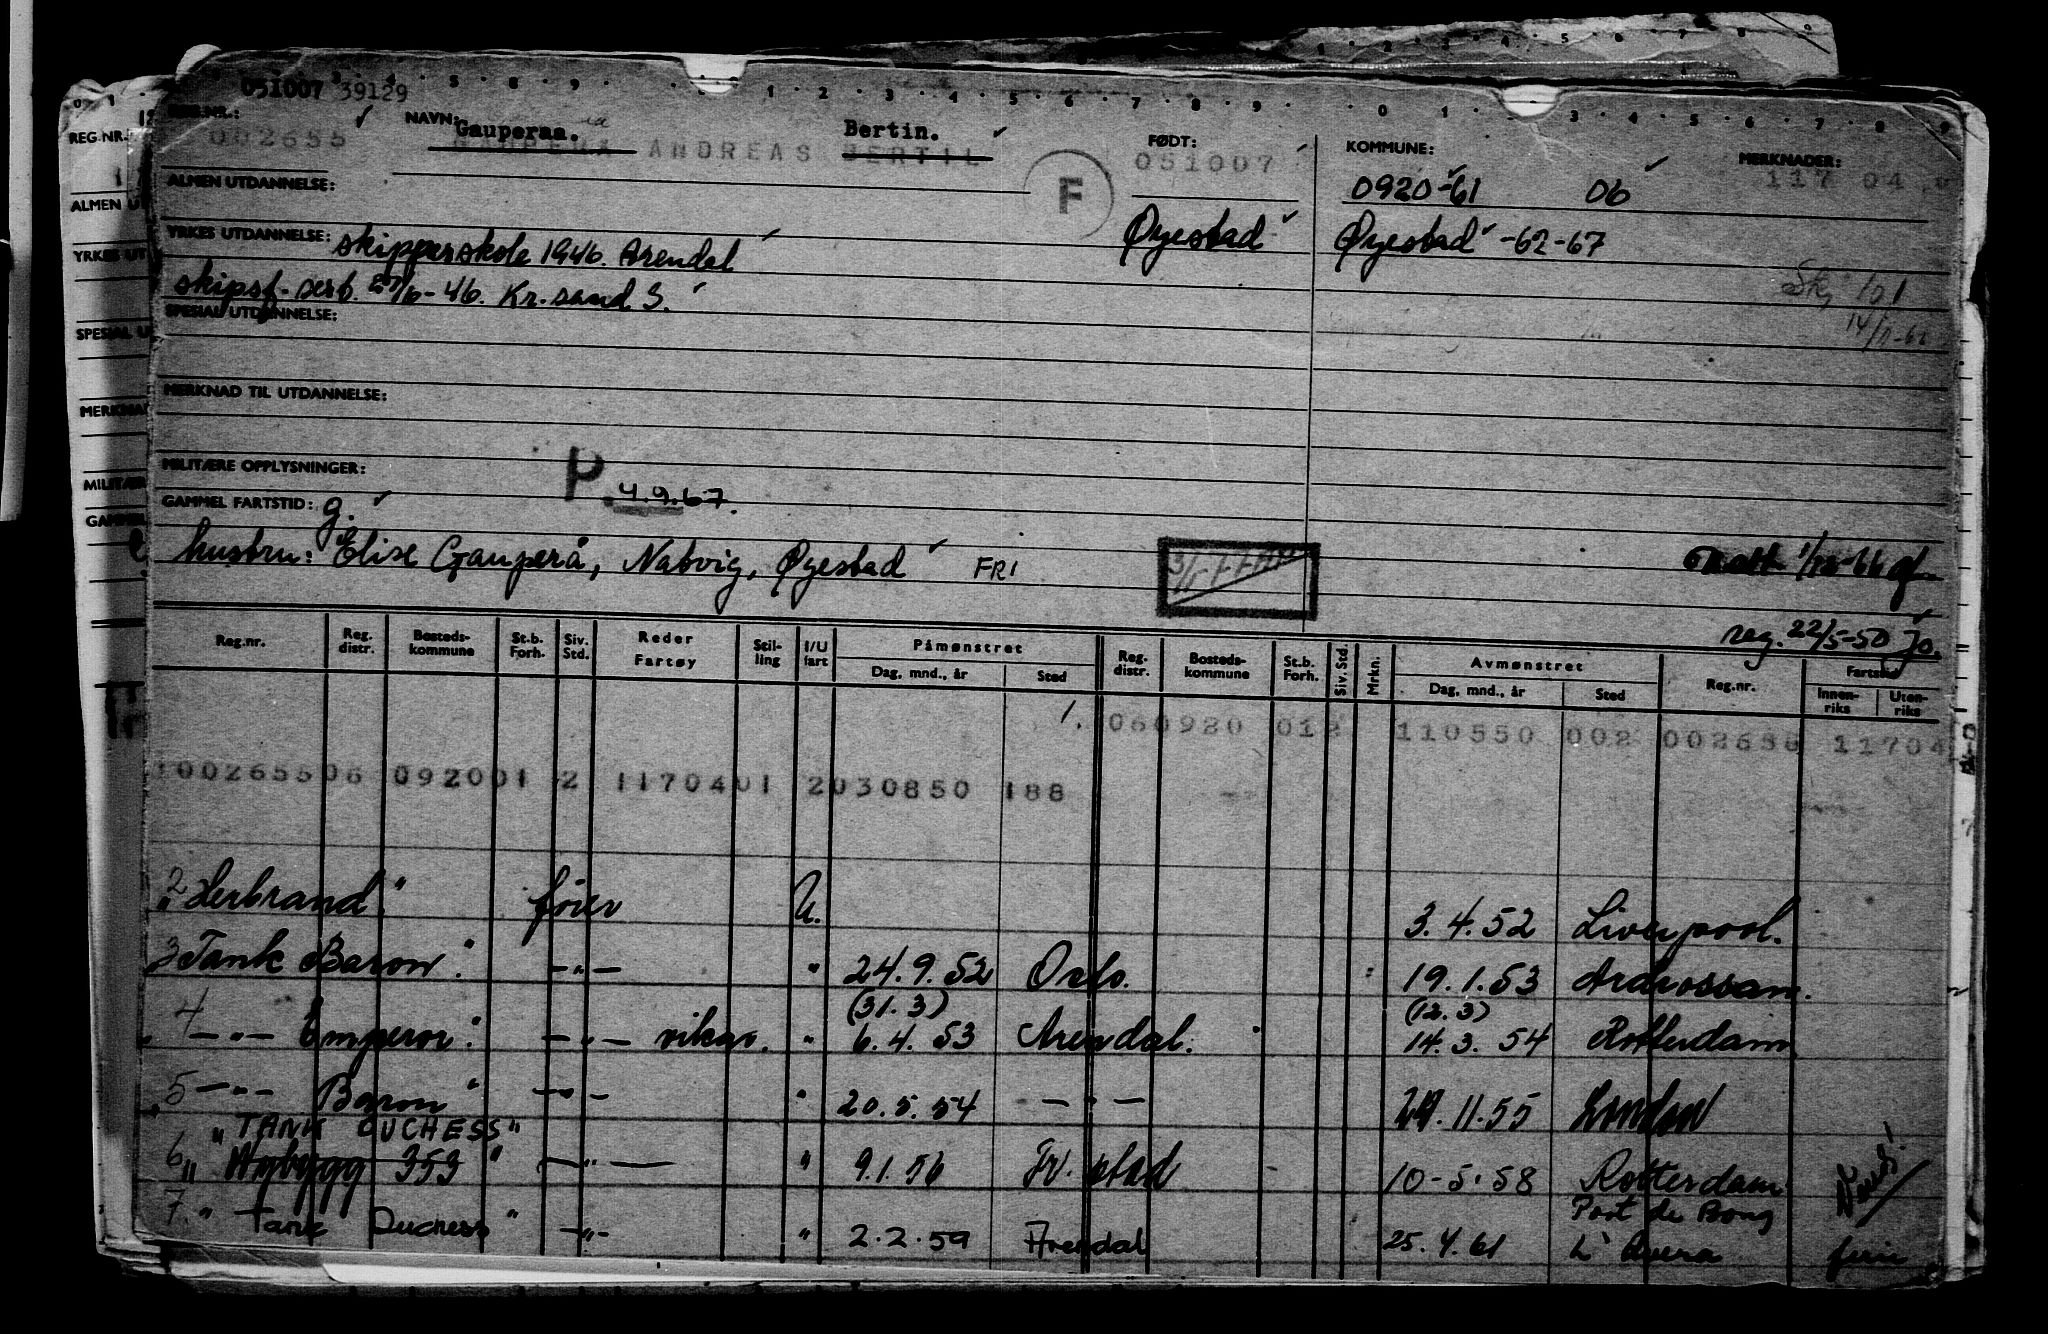 051007 39129
REG.NR.:
002655
NAVN:
Gauperaa. Bertin.
ANDREAS BERTIL
F
FØDT:
051007
KOMMUNE:
0920-61 06
MERKNADER:
117 04
ALMEN UTDANNELSE:
Øyestad
Øyestad -62-67
YRKES UTDANNELSE: skipperskole 1946. Arendal
skipsf.-sert. 27/6-46. Kr.sand S.
SPESIAL UTDANNELSE:
MERKNAD TIL UTDANNELSE:
MILITÆRE OPPLYSNINGER:
P 4.9.67.
GAMMEL FARTSTID: g.
hustru: Elise Gauperå, Natvig, Øyestad FRI
reg. 22/5-50 Jo.
Reg.nr. Reg. distr. Bosteds-kommune St.b. Forh. Siv. Std. Reder Fartøy Stil-ling I/U fart Påmønstret Dag, mnd., år Sted Reg. distr. Bosteds-kommune St.b. Forh. Siv. Std. Mrkn. Avmønstret Dag, mnd., år Sted Reg.nr. Fartstid Innen-riks Uten-riks
1. 060920 012 110550 002 002656 11704
100265506 092001 2 1170401 2030850 188
2 "Herbrand" fører U. 3.4.52 Liverpool.
3 Tank Baron" -"- " 24.9.52 Oslo. 19.1.53 Ardrossan.
(31.3) (12.3)
4 -"- Emperor" -"- vikar. " 6.4.53 Arendal. 14.3.54 Rotterdam
5 -"- Baron" -"- " 20.5.54 -"- 11.55 London
"TANK DUCHESS"
6 " Nybygg 353" -"- " 9.1.56 Fr.stad 10-5-58 Rotterdam
7. " Tank Duchess" -"- " 2.2.59 Arendal 25.4.61 Port de Bouc
ferie